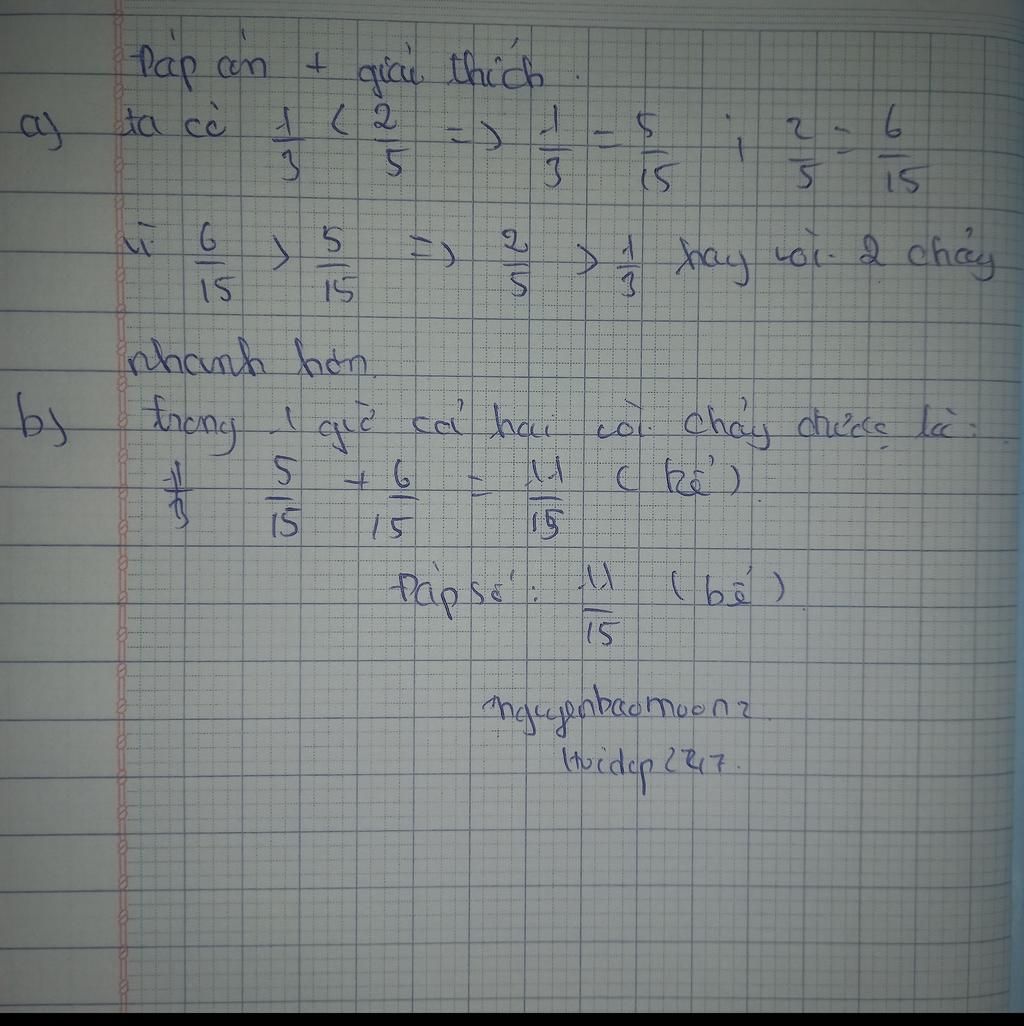 Đáp án + giải thích.
a) ta có 1/3 < 2/5 => 1/3 = 5/15 ; 2/5 = 6/15
vì 6/15 > 5/15 => 2/5 > 1/3 hay vòi 2 chảy
nhanh hơn.
b) trong 1 giờ cả hai vòi chảy được là:
5/15 + 6/15 = 11/15 (bể)
Đáp số: 11/15 (bể)
nguyenbaomoon2
Hoidap247.